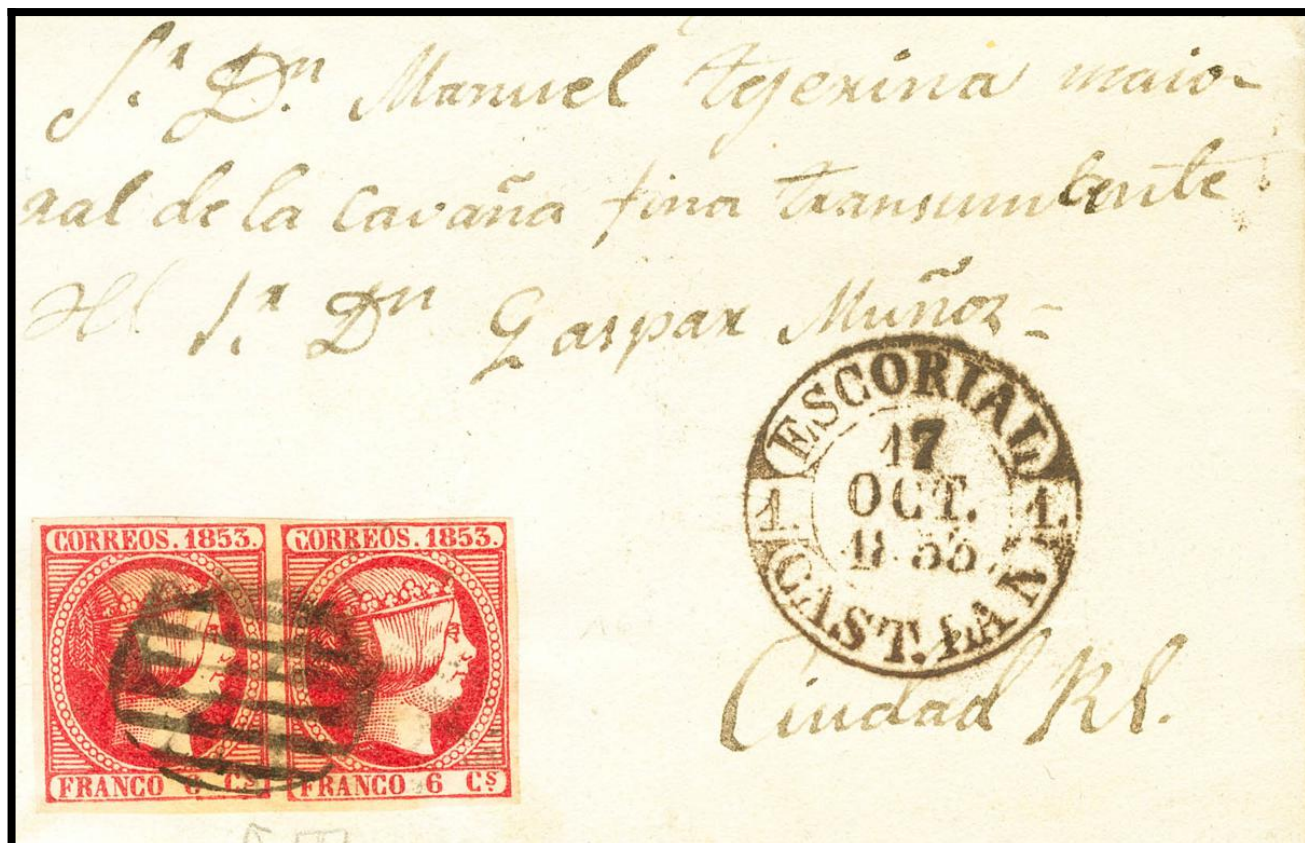 S.r D.n Manuel tegerina maio-
ral de la cavaña fina transumbente
S.r D.n Gaspar Muñoz=
ESCORIAL
17
OCT.
1.
1.
CAST. LA N
Ciudad Rl.
CORREOS. 1853.
CORREOS. 1853.
FRANCO 6 Cs
FRANCO 6 Cs